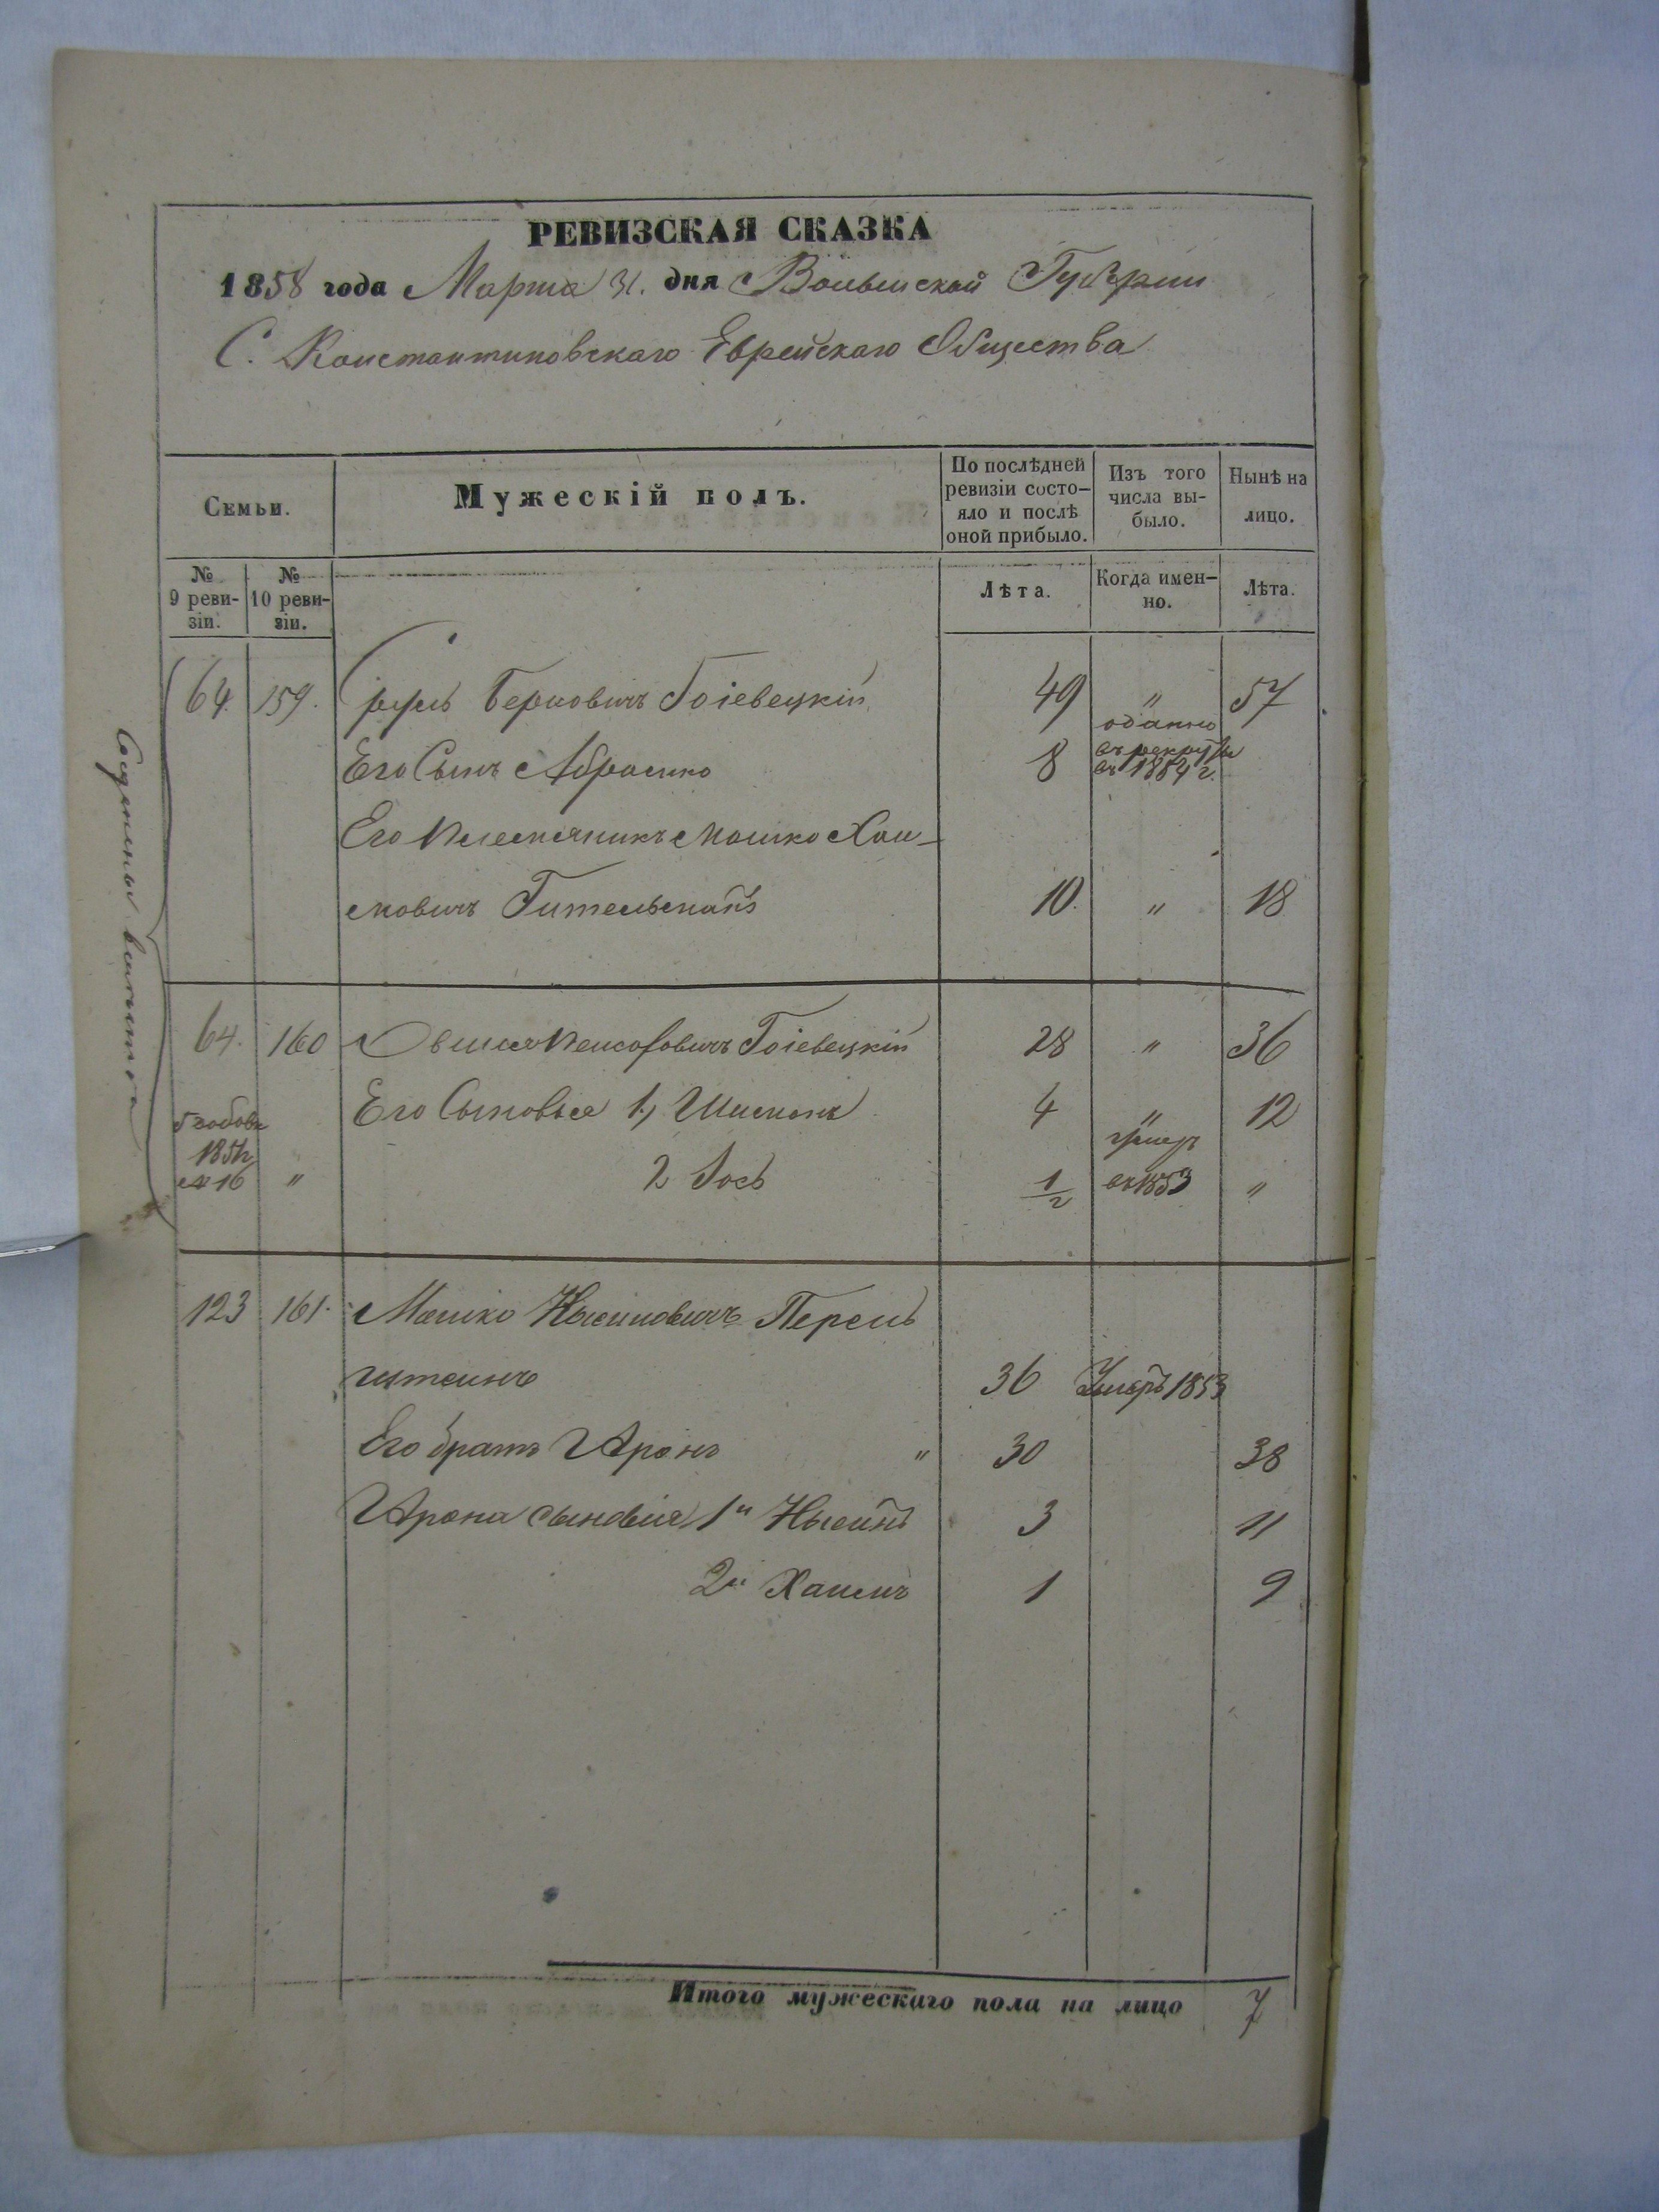 РЕВИЗСКАЯ СКАЗКА
1858 года Марта 31. дня Волынской Губернии
С. Константиновскаго Еврейскаго Общества
Семьи.
Мужескій полъ.
По послѣдней ревизіи состо-
яло и послѣ оной прибыло.
Изъ того числа вы-
было.
Нынѣ на лицо.
№ 9 реви-
зіи.
№ 10 реви-
зіи.
Лѣта.
Когда имен-
но.
Лѣта.
64. 159. Сруль Берковичъ Гоіевецкій 49 " 57
Его Сынъ Абрамко 8 отдань въ рекруты въ 1854 г.
Его Племянникъ Мошко Хаи-
мовичъ Гительманъ 10. " 18
64. 160 Овшія Пейсаховичъ Гоіевецкій 28 " 36
Его Сыновья 1, Шимонъ 4 " 12
1851г
№ 16 " 2 Іось 1/2 умеръ въ 1853 "
123 161. Мошко Нысиновичъ Перель
штейнъ 36 Умеръ 1853
Его братъ Аронъ " 30 38
Арона сыновья 1й Нысинъ 3 11
2й Хаимъ 1 9
Итого мужескаго пола на лицо 7